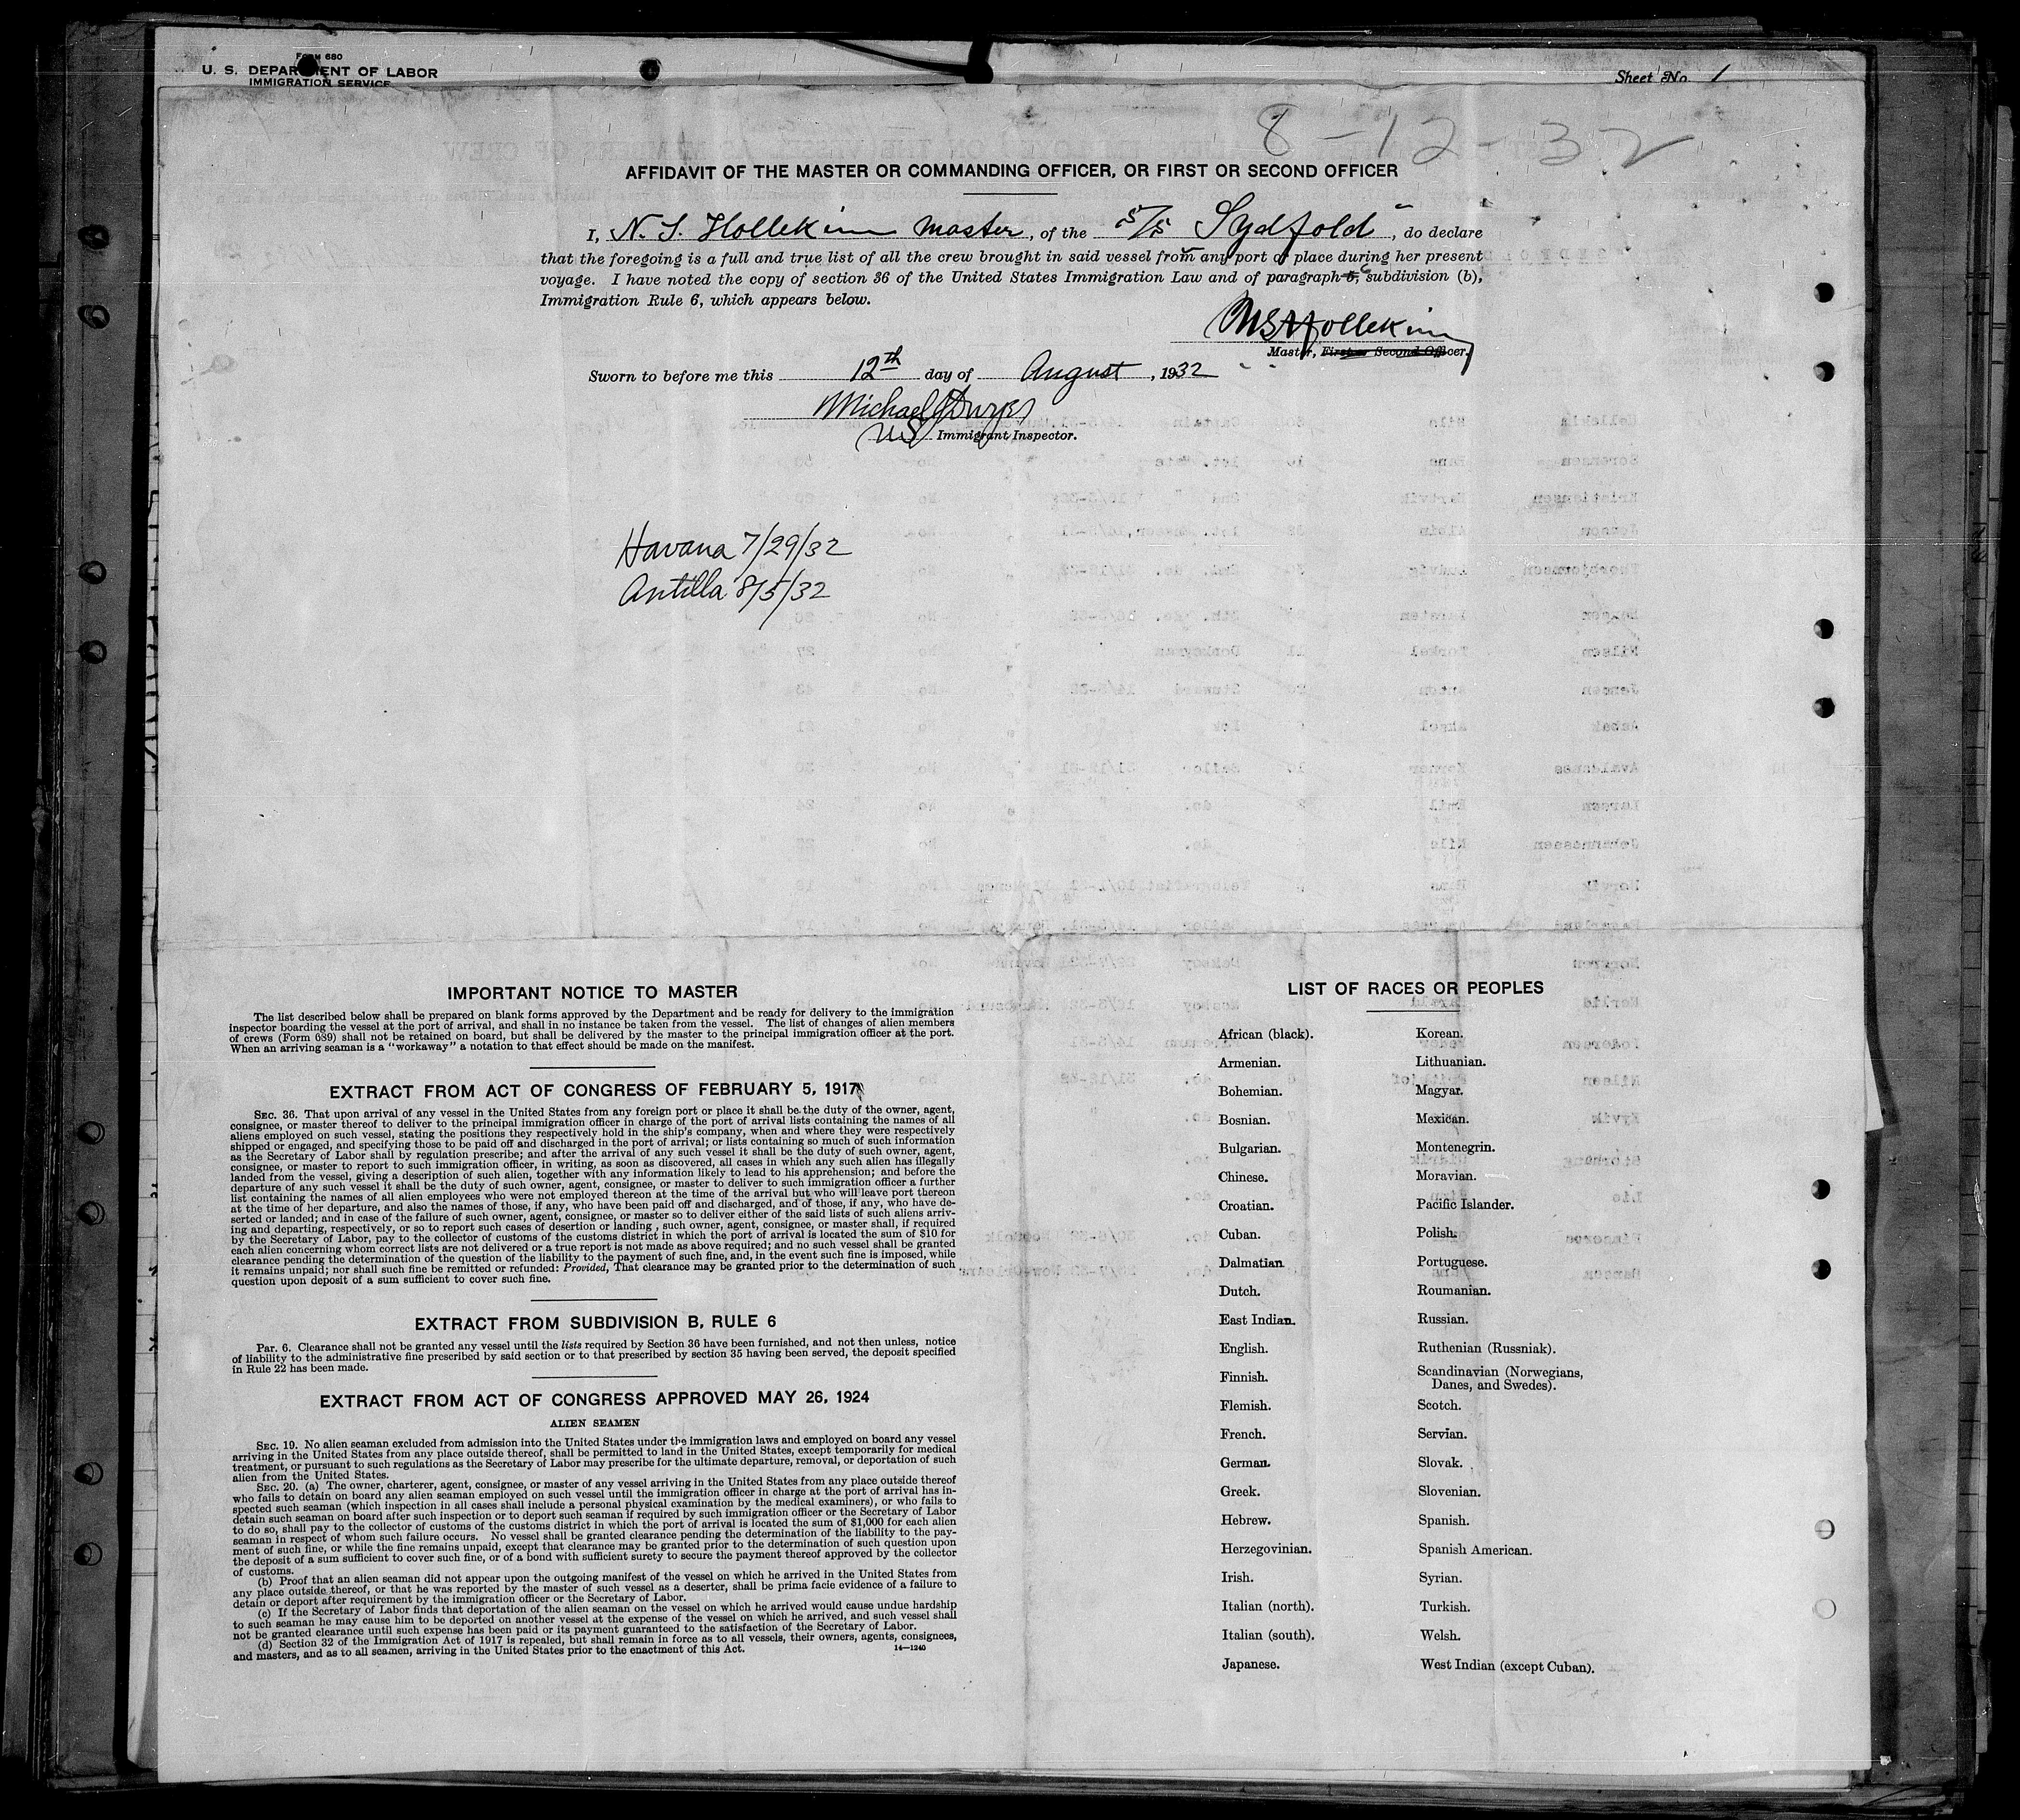 Form 680
U. S. DEPARTMENT OF LABOR
IMMIGRATION SERVICE
Sheet No. 1
8-12-32
AFFIDAVIT OF THE MASTER OR COMMANDING OFFICER, OR FIRST OR SECOND OFFICER
I, N. S. Hollekim master, of the S/S Sydfold", do declare
that the foregoing is a full and true list of all the crew brought in said vessel from any port or place during her present
voyage. I have noted the copy of section 36 of the United States Immigration Law and of paragraph 6, subdivision (b),
Immigration Rule 6, which appears below.
NSHollekim
Master, First or Second Officer.
Sworn to before me this 12th day of August, 1932
Michael
US Immigrant Inspector.
Havana 7/29/32
Antilla 8/5/32
IMPORTANT NOTICE TO MASTER
The list described below shall be prepared on blank forms approved by the Department and be ready for delivery to the immigration
inspector boarding the vessel at the port of arrival, and shall in no instance be taken from the vessel. The list of changes of alien members
of crews (Form 689) shall not be retained on board, but shall be delivered by the master to the principal immigration officer at the port.
When an arriving seaman is a "workaway" a notation to that effect should be made on the manifest.
EXTRACT FROM ACT OF CONGRESS OF FEBRUARY 5, 1917
SEC. 36. That upon arrival of any vessel in the United States from any foreign port or place it shall be the duty of the owner, agent,
consignee, or master thereof to deliver to the principal immigration officer in charge of the port of arrival lists containing the names of all
aliens employed on such vessel, stating the positions they respectively hold in the ship's company, when and where they were respectively
shipped or engaged, and specifying those to be paid off and discharged in the port of arrival; or lists containing so much of such information
as the Secretary of Labor shall by regulation prescribe; and after the arrival of any such vessel it shall be the duty of such owner, agent,
consignee, or master to report to such immigration officer, in writing, as soon as discovered, all cases in which any such alien has illegally
landed from the vessel, giving a description of such alien, together with any information likely to lead to his apprehension; and before the
departure of any such vessel it shall be the duty of such owner, agent, consignee, or master to deliver to such immigration officer a further
list containing the names of all alien employees who were not employed thereon at the time of the arrival but who will leave port thereon
at the time of her departure, and also the names of those, if any, who have been paid off and discharged, and of those, if any, who have de-
serted or landed; and in case of the failure of such owner, agent, consignee, or master so to deliver either of the said lists of such aliens arriv-
ing and departing, respectively, or so to report such cases of desertion or landing, such owner, agent, consignee, or master shall, if required
by the Secretary of Labor, pay to the collector of customs of the customs district in which the port of arrival is located the sum of $10 for
each alien concerning whom correct lists are not delivered or a true report is not made as above required; and no such vessel shall be granted
clearance pending the determination of the question of the liability to the payment of such fine, and, in the event such fine is imposed, while
it remains unpaid; nor shall such fine be remitted or refunded: Provided, That clearance may be granted prior to the determination of such
question upon deposit of a sum sufficient to cover such fine.
EXTRACT FROM SUBDIVISION B, RULE 6
Par. 6. Clearance shall not be granted any vessel until the lists required by Section 36 have been furnished, and not then unless, notice
of liability to the administrative fine prescribed by said section or to that prescribed by section 35 having been served, the deposit specified
in Rule 22 has been made.
EXTRACT FROM ACT OF CONGRESS APPROVED MAY 26, 1924
ALIEN SEAMEN
SEC. 19. No alien seaman excluded from admission into the United States under the immigration laws and employed on board any vessel
arriving in the United States from any place outside thereof, shall be permitted to land in the United States, except temporarily for medical
treatment, or pursuant to such regulations as the Secretary of Labor may prescribe for the ultimate departure, removal, or deportation of such
alien from the United States.
SEC. 20. (a) The owner, charterer, agent, consignee, or master of any vessel arriving in the United States from any place outside thereof
who fails to detain on board any alien seaman employed on such vessel until the immigration officer in charge at the port of arrival has in-
spected such seaman (which inspection in all cases shall include a personal physical examination by the medical examiners), or who fails to
detain such seaman on board after such inspection or to deport such seaman if required by such immigration officer or the Secretary of Labor
to do so, shall pay to the collector of customs of the customs district in which the port of arrival is located the sum of $1,000 for each alien
seaman in respect of whom such failure occurs. No vessel shall be granted clearance pending the determination of the liability to the pay-
ment of such fine, or while the fine remains unpaid, except that clearance may be granted prior to the determination of such question upon
the deposit of a sum sufficient to cover such fine, or of a bond with sufficient surety to secure the payment thereof approved by the collector
of customs.
(b) Proof that an alien seaman did not appear upon the outgoing manifest of the vessel on which he arrived in the United States from
any place outside thereof, or that he was reported by the master of such vessel as a deserter, shall be prima facie evidence of a failure to
detain or deport after requirement by the immigration officer or the Secretary of Labor.
(c) If the Secretary of Labor finds that deportation of the alien seaman on the vessel on which he arrived would cause undue hardship
to such seaman he may cause him to be deported on another vessel at the expense of the vessel on which he arrived, and such vessel shall
not be granted clearance until such expense has been paid or its payment guaranteed to the satisfaction of the Secretary of Labor.
(d) Section 32 of the Immigration Act of 1917 is repealed, but shall remain in force as to all vessels, their owners, agents, consignees,
and masters, and as to all seamen, arriving in the United States prior to the enactment of this Act.
14—1240
LIST OF RACES OR PEOPLES
African (black).
Armenian.
Bohemian.
Bosnian.
Bulgarian.
Chinese.
Croatian.
Cuban.
Dalmatian
Dutch.
East Indian.
English.
Finnish.
Flemish.
French.
German.
Greek.
Hebrew.
Herzegovinian.
Irish.
Italian (north).
Italian (south).
Japanese.
Korean.
Lithuanian.
Magyar.
Mexican.
Montenegrin.
Moravian.
Pacific Islander.
Polish.
Portuguese.
Roumanian.
Russian.
Ruthenian (Russniak).
Scandinavian (Norwegians,
Danes, and Swedes).
Scotch.
Servian.
Slovak.
Slovenian.
Spanish.
Spanish American.
Syrian.
Turkish.
Welsh.
West Indian (except Cuban).